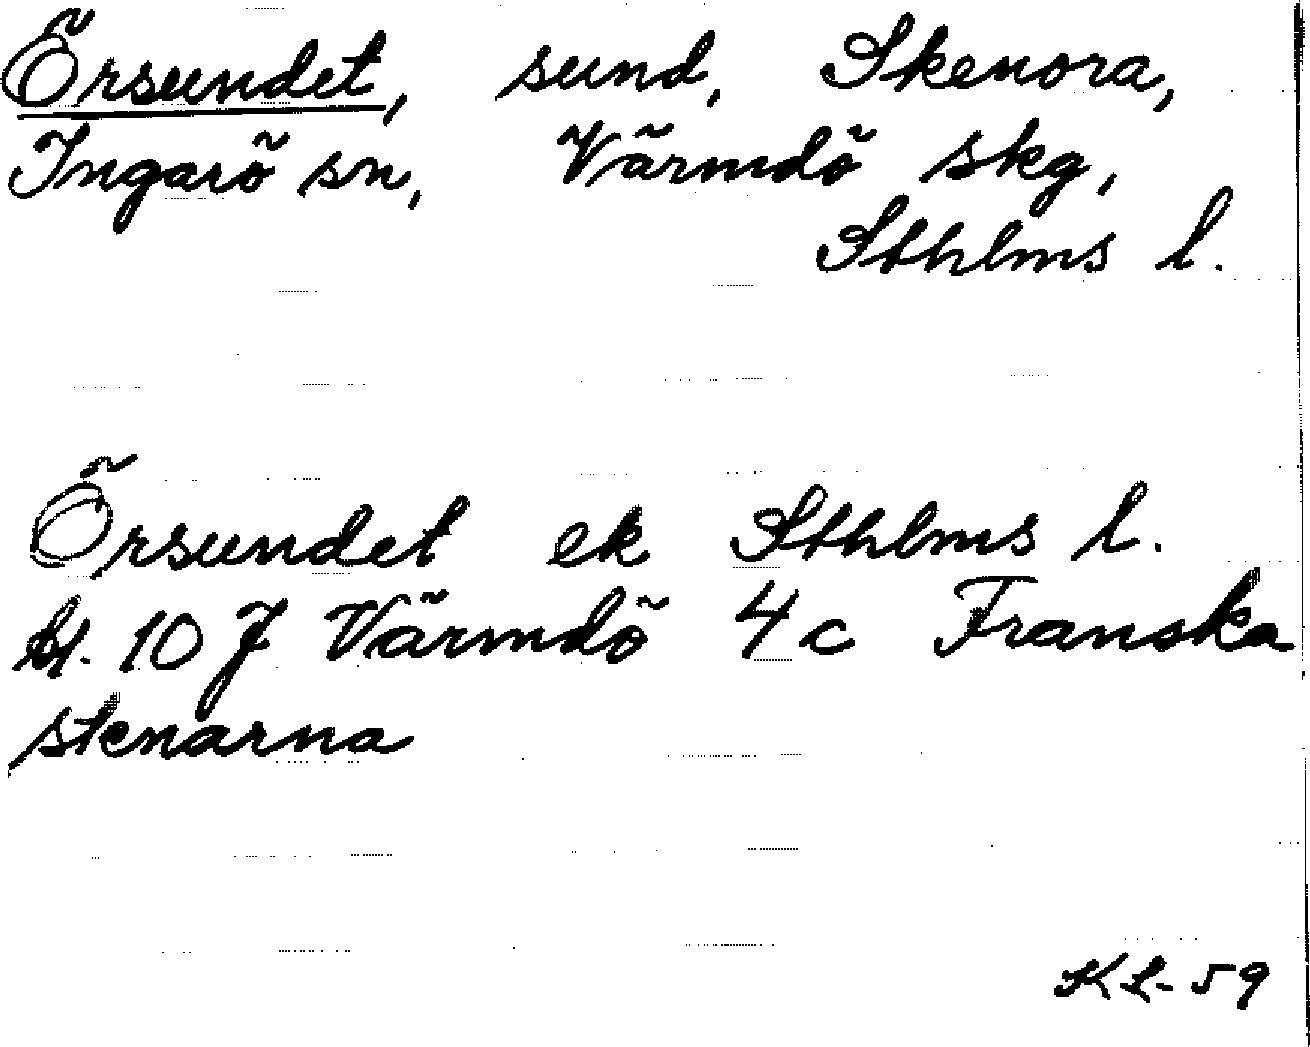 Örsundet, sund, Skenora,
Ingarö sn, Värmdö skg,
Sthlms l.
Örsundet ek Sthlms l.
bl. 10 J Värmdö 4c Franska
stenarna
KL-59